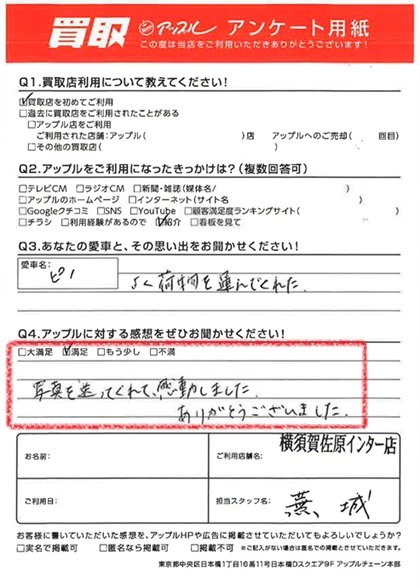 買取 アップル アンケート用紙
この度は当店をご利用いただきありがとうございます!
Q1.買取店利用について教えてください!
☑買取店を初めてご利用
□過去に買取店をご利用されたことがある
□アップル店をご利用
ご利用された店舗:アップル( )店 アップルへのご売却( 回目)
□その他の買取店( )
Q2.アップルをご利用になったきっかけは?(複数回答可)
□テレビCM □ラジオCM □新聞・雑誌(媒体名/ )
□アップルのホームページ □インターネット(サイト名 )
□Googleクチコミ □SNS □YouTube □顧客満足度ランキングサイト( )
□チラシ □利用経験があるので ☑紹介 □看板を見て
Q3.あなたの愛車と、その思い出をお聞かせください!
愛車名:
ピノ
よく荷物を運んでくれた.
Q4.アップルに対する感想をぜひお聞かせください!
□大満足 ☑満足 □もう少し □不満
写真を送ってくれて、感動しました.
ありがとうございました.
お名前:
ご利用店舗名:
横須賀佐原インター店
ご利用日:
担当スタッフ名:
お客様に書いていただいた感想を、アップルHPや広告に掲載させていただいてもよろしいでしょうか?
□実名で掲載可 □匿名なら掲載可 □掲載不可 ※ご記入がない場合は匿名での掲載とさせていただきます。
東京都中央区日本橋1丁目16番11号日本橋Dスクエア9F アップルチェーン本部